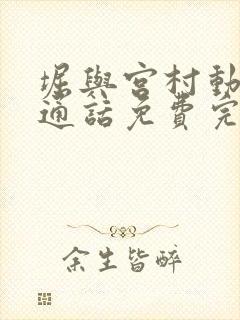 堀與宮村動
通話免費完
余生皆醉